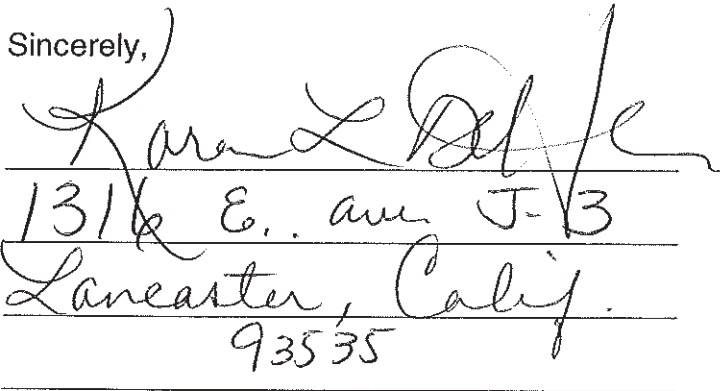 Sincerely,
Karen L
1316 E. Ave J-3
Lancaster, Calif.
93535